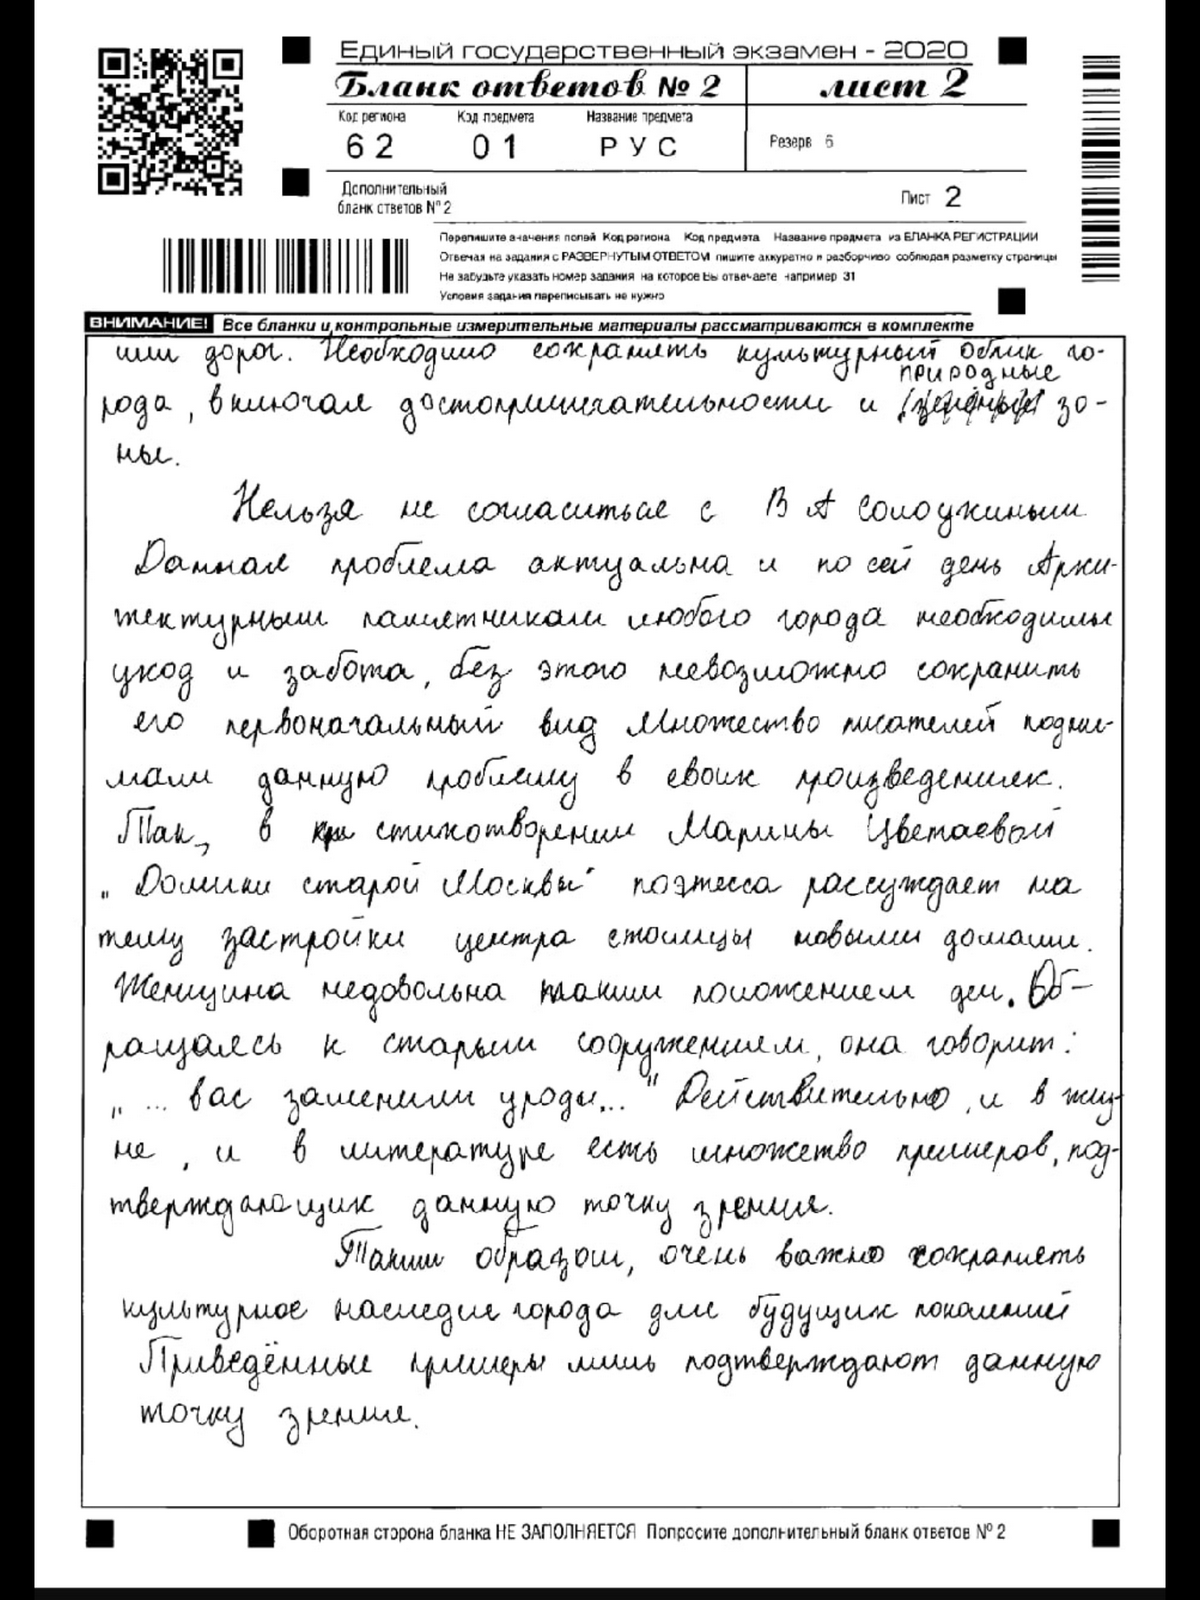 Единый государственный экзамен - 2020
Бланк ответов № 2 лист 2
Код региона Код предмета Название предмета
62 01 РУС Резерв 6
Дополнительный
бланк ответов № 2 Лист 2
Перепишите значения полей Код региона Код предмета Название предмета из БЛАНКА РЕГИСТРАЦИИ
Отвечая на задания с РАЗВЕРНУТЫМ ОТВЕТОМ пишите аккуратно и разборчиво соблюдая разметку страницы
Не забудьте указать номер задания на которое Вы отвечаете например 31
Условия задания переписывать не нужно
ВНИМАНИЕ! Все бланки и контрольные измерительные материалы рассматриваются в комплекте
или дорог. Необходимо сохранять культурный облик го-
природные
рода, включая достопримечательности и зо-
ны.
Нельзя не согласиться с В А Солоухиным
Данная проблема актуальна и по сей день Архи-
тектурным памятникам любого города необходимы
уход и забота, без этого невозможно сохранить
его первоначальный вид Множество писателей подни-
мали данную проблему в своих произведениях.
Так, в стихотворении Марины Цветаевой
„Домики старой Москвы" поэтесса рассуждает на
тему застройки центра столицы новыми домами.
Женщина недовольна таким положением дел. Об-
ращаясь к старым сооружениям, она говорит:
„... вас заменили уроды..." Действительно, и в жиз-
не, и в литературе есть множество примеров, под-
тверждающих данную точку зрения.
Таким образом, очень важно сохранять
культурное наследие города для будущих поколений
Приведённые примеры лишь подтверждают данную
точку зрения.
Оборотная сторона бланка НЕ ЗАПОЛНЯЕТСЯ Попросите дополнительный бланк ответов № 2